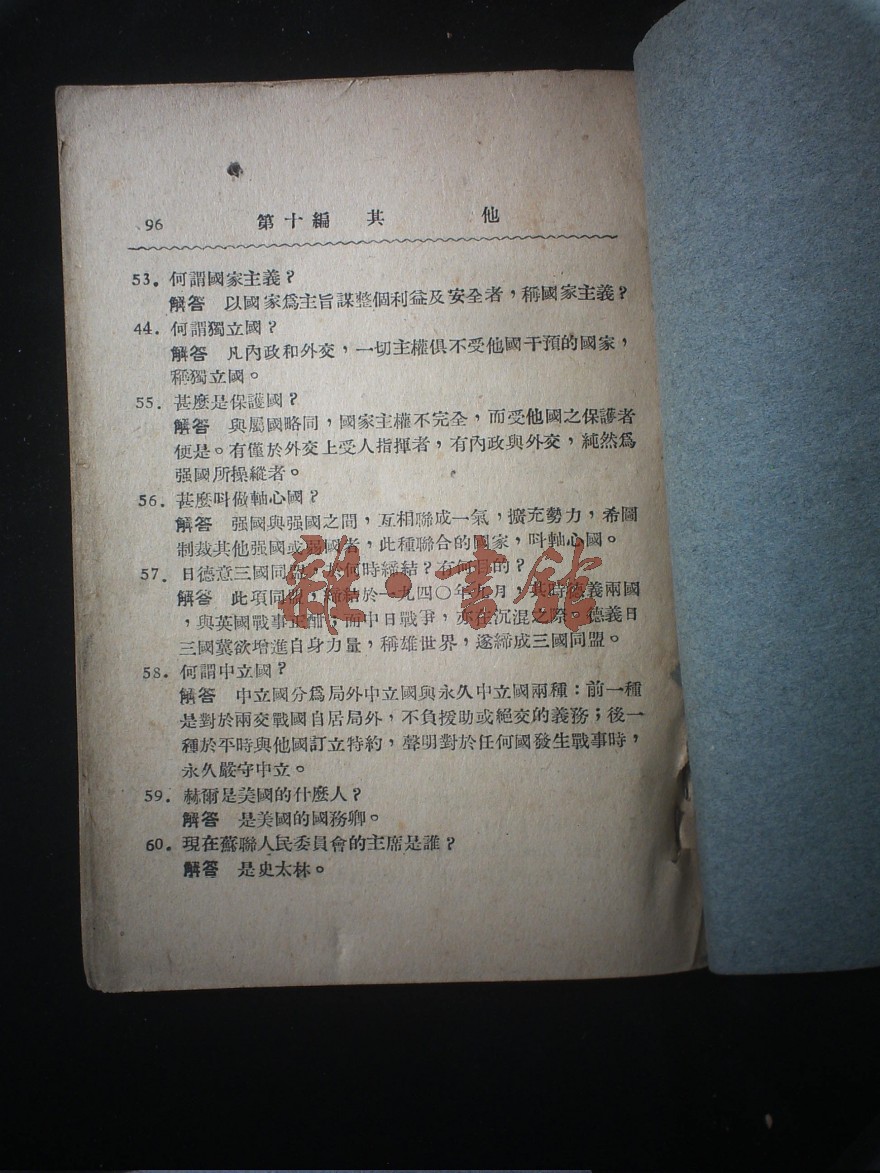 96 第十編 其 他
53. 何謂國家主義?
解答 以國家爲主旨謀整個利益及安全者,稱國家主義?
44. 何謂獨立國?
解答 凡內政和外交,一切主權俱不受他國干預的國家,
稱獨立國。
55. 甚麼是保護國?
解答 與屬國略同,國家主權不完全,而受他國之保護者
便是。有僅於外交上受人指揮者,有內政與外交,純然爲
强國所操縱者。
56. 甚麼叫做軸心國?
解答 强國與强國之間,互相聯成一氣,擴充勢力,希圖
制裁其他强國或弱國者,此種聯合的國家,叫軸心國。
57. 日德意三國同盟,於何時締結?有何目的?
解答 此項同盟,締結於一九四〇年九月,其時德義兩國
,與英國戰事正酣;而中日戰爭,亦在沉混之際。德義日
三國冀欲增進自身力量,稱雄世界,遂締成三國同盟。
58. 何謂中立國?
解答 中立國分爲局外中立國與永久中立國兩種:前一種
是對於兩交戰國自居局外,不負援助或絕交的義務;後一
種於平時與他國訂立特約,聲明對於任何國發生戰事時,
永久嚴守中立。
59. 赫爾是美國的什麼人?
解答 是美國的國務卿。
60. 現在蘇聯人民委員會的主席是誰?
解答 是史太林。
雜·書館